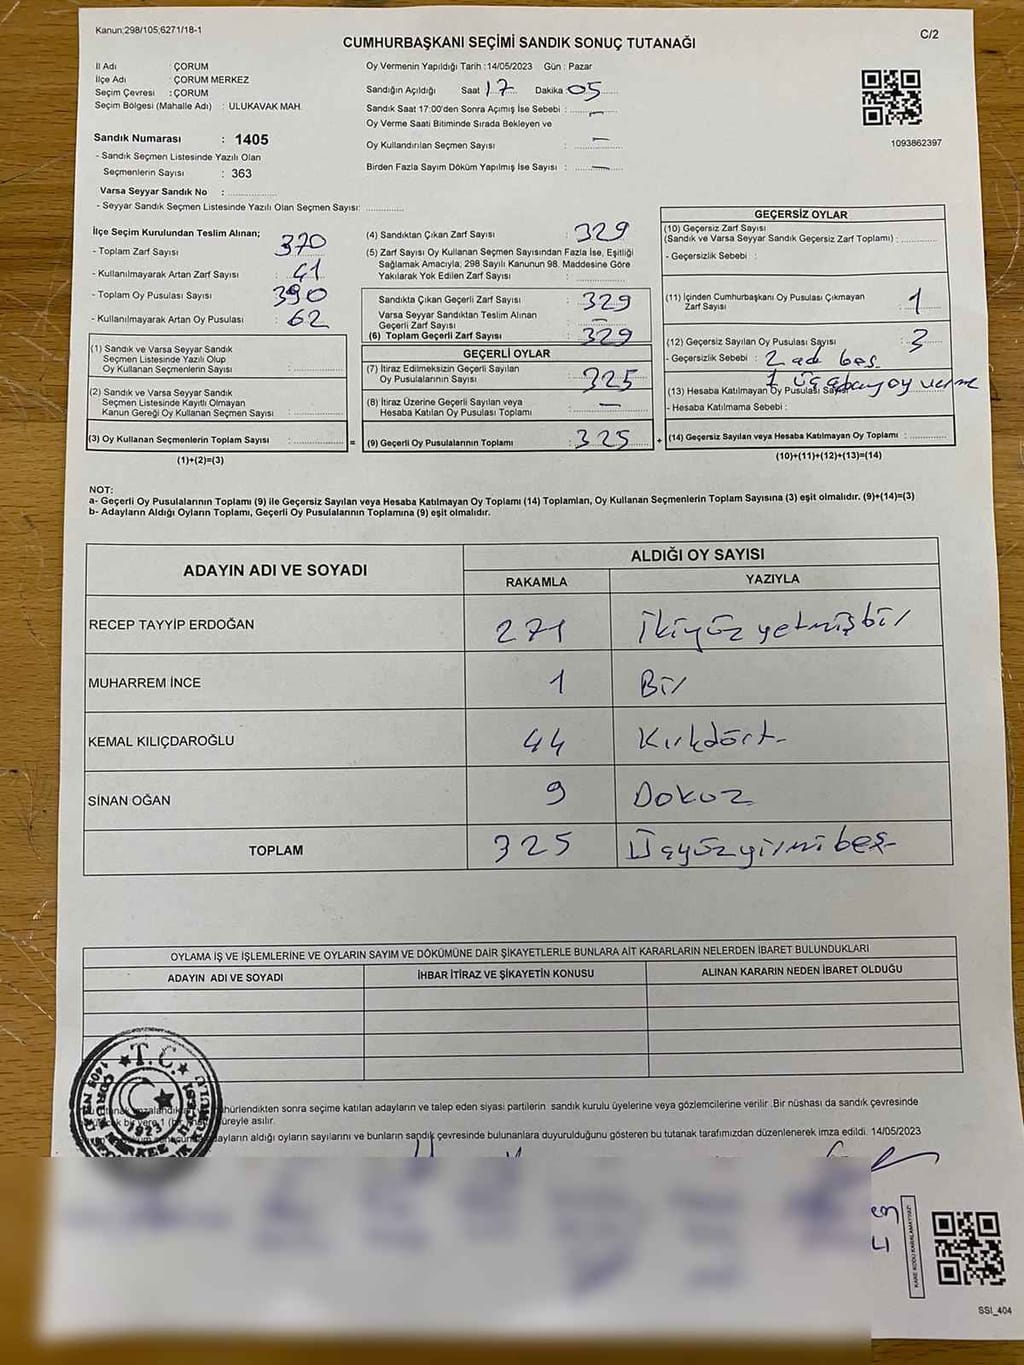 Kanun;298/105;6271/18-1
C/2
CUMHURBAŞKANI SEÇİMİ SANDIK SONUÇ TUTANAĞI
İl Adı : ÇORUM
İlçe Adı : ÇORUM MERKEZ
Seçim Çevresi : ÇORUM
Seçim Bölgesi (Mahalle Adı) : ULUKAVAK MAH.
Sandık Numarası : 1405
- Sandık Seçmen Listesinde Yazılı Olan
Seçmenlerin Sayısı : 363
Varsa Seyyar Sandık No :
- Seyyar Sandık Seçmen Listesinde Yazılı Olan Seçmen Sayısı:
Oy Vermenin Yapıldığı Tarih :14/05/2023 Gün : Pazar
Sandığın Açıldığı Saat 17 Dakika 05
Sandık Saat 17:00'den Sonra Açımış İse Sebebi : —
Oy Verme Saati Bitiminde Sırada Bekleyen ve
Oy Kullandırılan Seçmen Sayısı : —
Birden Fazla Sayım Döküm Yapılmış İse Sayısı : —
1093862397
İlçe Seçim Kurulundan Teslim Alınan;
- Toplam Zarf Sayısı : 370
- Kullanılmayarak Artan Zarf Sayısı : 41
- Toplam Oy Pusulası Sayısı : 390
- Kullanılmayarak Artan Oy Pusulası : 62
(1) Sandık ve Varsa Seyyar Sandık
Seçmen Listesinde Yazılı Olup
Oy Kullanan Seçmenlerin Sayısı :
(2) Sandık ve Varsa Seyyar Sandık
Seçmen Listesinde Kayıtlı Olmayan
Kanun Gereği Oy Kullanan Seçmen Sayısı :
(3) Oy Kullanan Seçmenlerin Toplam Sayısı :
(1)+(2)=(3)
=
(4) Sandıktan Çıkan Zarf Sayısı : 329
(5) Zarf Sayısı Oy Kullanan Seçmen Sayısından Fazla İse, Eşitliği
Sağlamak Amacıyla, 298 Sayılı Kanunun 98. Maddesine Göre
Yakılarak Yok Edilen Zarf Sayısı :
Sandıkta Çıkan Geçerli Zarf Sayısı : 329
Varsa Seyyar Sandıktan Teslim Alınan
Geçerli Zarf Sayısı : —
(6) Toplam Geçerli Zarf Sayısı : 329
GEÇERLİ OYLAR
(7) İtiraz Edilmeksizin Geçerli Sayılan
Oy Pusulalarının Sayısı : 325
(8) İtiraz Üzerine Geçerli Sayılan veya
Hesaba Katılan Oy Pusulası Toplamı : —
(9) Geçerli Oy Pusulalarının Toplamı : 325
+
GEÇERSİZ OYLAR
(10) Geçersiz Zarf Sayısı
(Sandık ve Varsa Seyyar Sandık Geçersiz Zarf Toplamı) :
- Geçersizlik Sebebi :
(11) İçinden Cumhurbaşkanı Oy Pusulası Çıkmayan
Zarf Sayısı : 1
(12) Geçersiz Sayılan Oy Pusulası Sayısı : 3
- Geçersizlik Sebebi : 2 ad boş
(13) Hesaba Katılmayan Oy Pusulası Sayısı 1 oy verme
- Hesaba Katılmama Sebebi :
(14) Geçersiz Sayılan veya Hesaba Katılmayan Oy Toplamı :
(10)+(11)+(12)+(13)=(14)
NOT:
a- Geçerli Oy Pusulalarının Toplamı (9) ile Geçersiz Sayılan veya Hesaba Katılmayan Oy Toplamı (14) Toplamları, Oy Kullanan Seçmenlerin Toplam Sayısına (3) eşit olmalıdır. (9)+(14)=(3)
b- Adayların Aldığı Oyların Toplamı, Geçerli Oy Pusulalarının Toplamına (9) eşit olmalıdır.
ADAYIN ADI VE SOYADI
ALDIĞI OY SAYISI
RAKAMLA YAZIYLA
RECEP TAYYİP ERDOĞAN 271 İkiyüz yetmişbir
MUHARREM İNCE 1 Bir
KEMAL KILIÇDAROĞLU 44 Kırkdört
SİNAN OĞAN 9 Dokuz
TOPLAM 325 Üçyüzyirmibeş
OYLAMA İŞ VE İŞLEMLERİNE VE OYLARIN SAYIM VE DÖKÜMÜNE DAİR ŞİKAYETLERLE BUNLARA AİT KARARLARIN NELERDEN İBARET BULUNDUKLARI
ADAYIN ADI VE SOYADI İHBAR İTİRAZ VE ŞİKAYETİN KONUSU ALINAN KARARIN NEDEN İBARET OLDUĞU
T.C.
1923
hürlendikten sonra seçime katılan adayların ve talep eden siyasi partilerin sandık kurulu üyelerine veya gözlemcilerine verilir .Bir nüshası da sandık çevresinde
bir yere 1 süreyle asılır.
adayların aldığı oyların sayılarını ve bunların sandık çevresinde bulunanlara duyurulduğunu gösteren bu tutanak tarafımızdan düzenlenerek imza edildi. 14/05/2023
KARE KODU KARALAMAYINIZ!
SSI_404